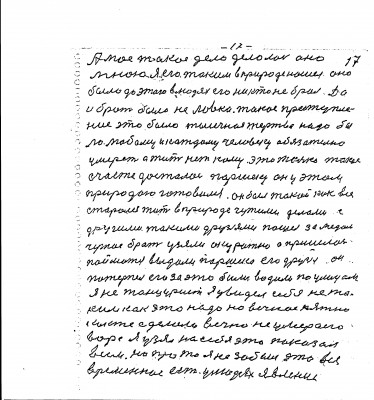 – 17 –
17
А мое такое дело делолос оно
мною я его таким в природе нашел оно
было до этого в людях его никто не брал. Да
и брат было не ловко. такое преступле-
ние это было типичная жертва надо бы
ло любому и каждому человеку обязательно
умереть а жить нет кому. это только такое
счастье досталос паршику он у этом
природою готовилися он был такой как все
старался жит в природе чужими делами с
другими такими друзями пошел за медом
чужое брат узяли он уратно а пришлос
поймали выдали паршика его други он
потерпел его за это били водили по улицам
я не танцурист я увидел себя не та-
ким как это надо но вечное пятно
вора я узял на себя это показал
всем. но про то я не забыл это все
временное ест. у людях явление